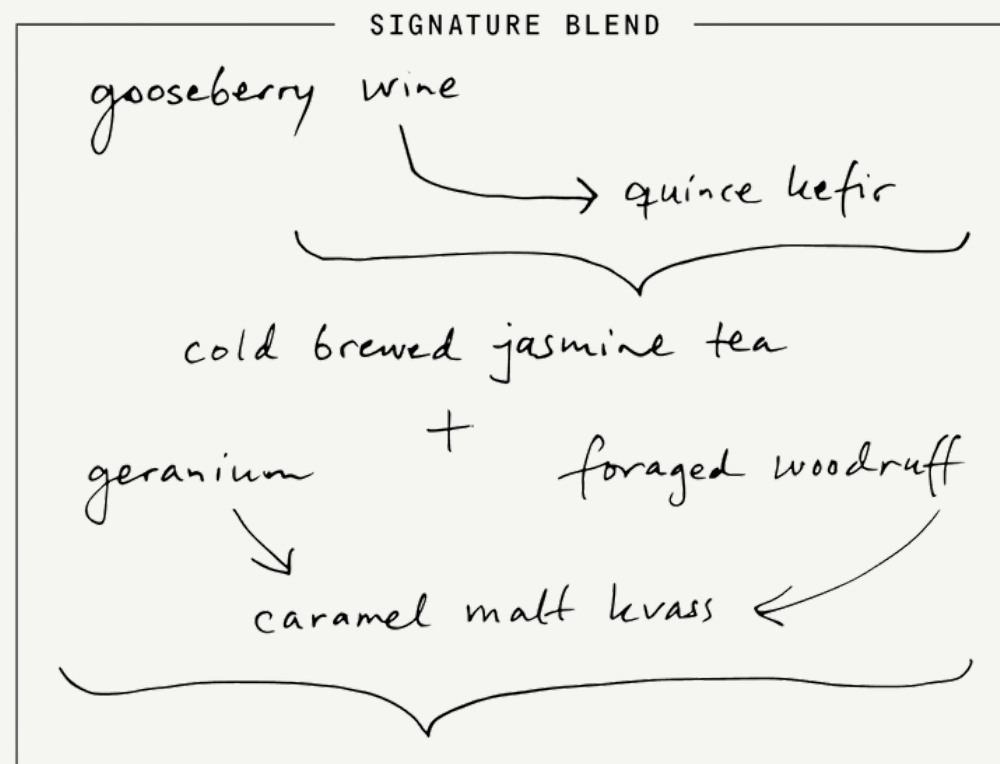 SIGNATURE BLEND
gooseberry wine
quince kefir
cold brewed jasmine tea
+
geranium
foraged woodruff
caramel malt kvass